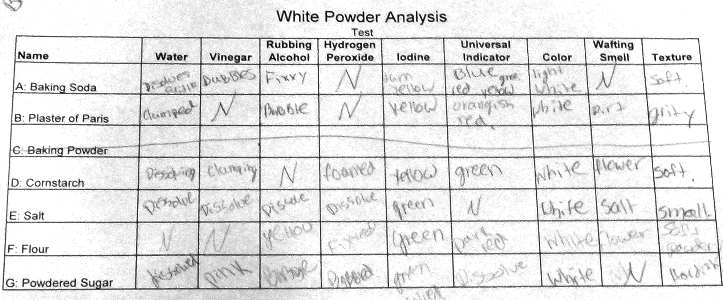 White Powder Analysis
Test
Name Water Vinegar Rubbing Alcohol Hydrogen Peroxide Iodine Universal Indicator Color Wafting Smell Texture
A: Baking Soda Bubbles Fizzy N yellow Blue red yellow light white N soft
B: Plaster of Paris Clumped N Bubble N yellow orangish red white Dirt grity
C: Baking Powder
D: Cornstarch Clumping N foamed yellow green white flower soft.
E: Salt Dissolve Dissolve Dissolve green N white salt small
F: Flour N N yellow green Dark red white flower soft
G: Powdered Sugar pink Dissolve white N